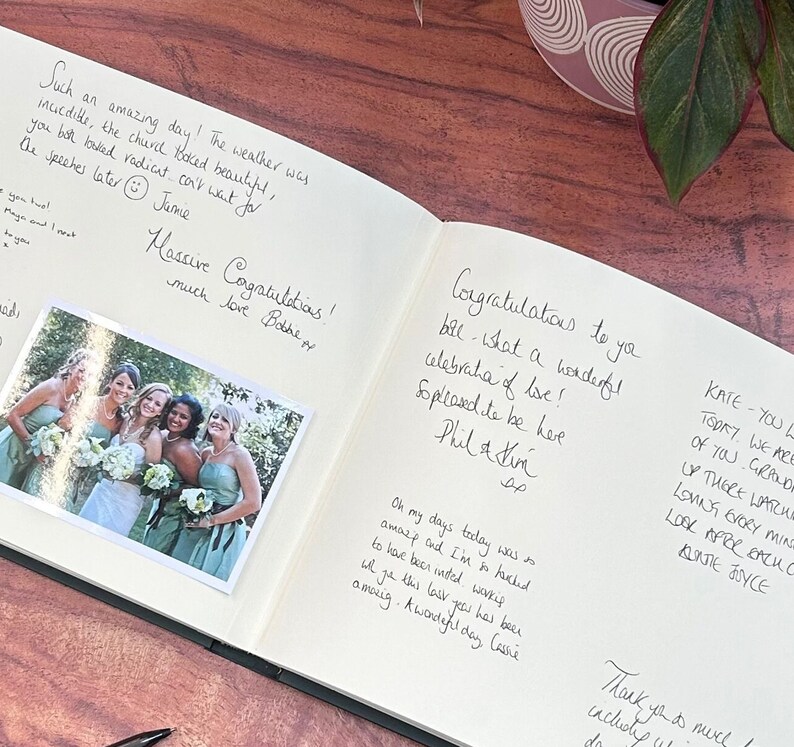 Such an amazing day! The weather was
incredible, the church looked beautiful,
you both looked radiant - can't wait for
the speeches later ☺ Jamie
you two!
Maya and I next
to you
x
Massive Congratulations!
much love Bobbie xx
Congratulations to you
both - what a wonderful
celebration of love!
So pleased to be here
Phil & Kim
xx
Oh my days today was so
amazing and I'm so honoured
to have been invited. working
with you this last year has been
amazing. A wonderful day, Cassie
KATE - YOU
TODAY. WE ARE
OF YOU. GRANDA
UP THERE WATCHIN
LOVING EVERY MIN
LOOK AFTER EACH O
AUNTIE JOYCE
Thank you so much
including